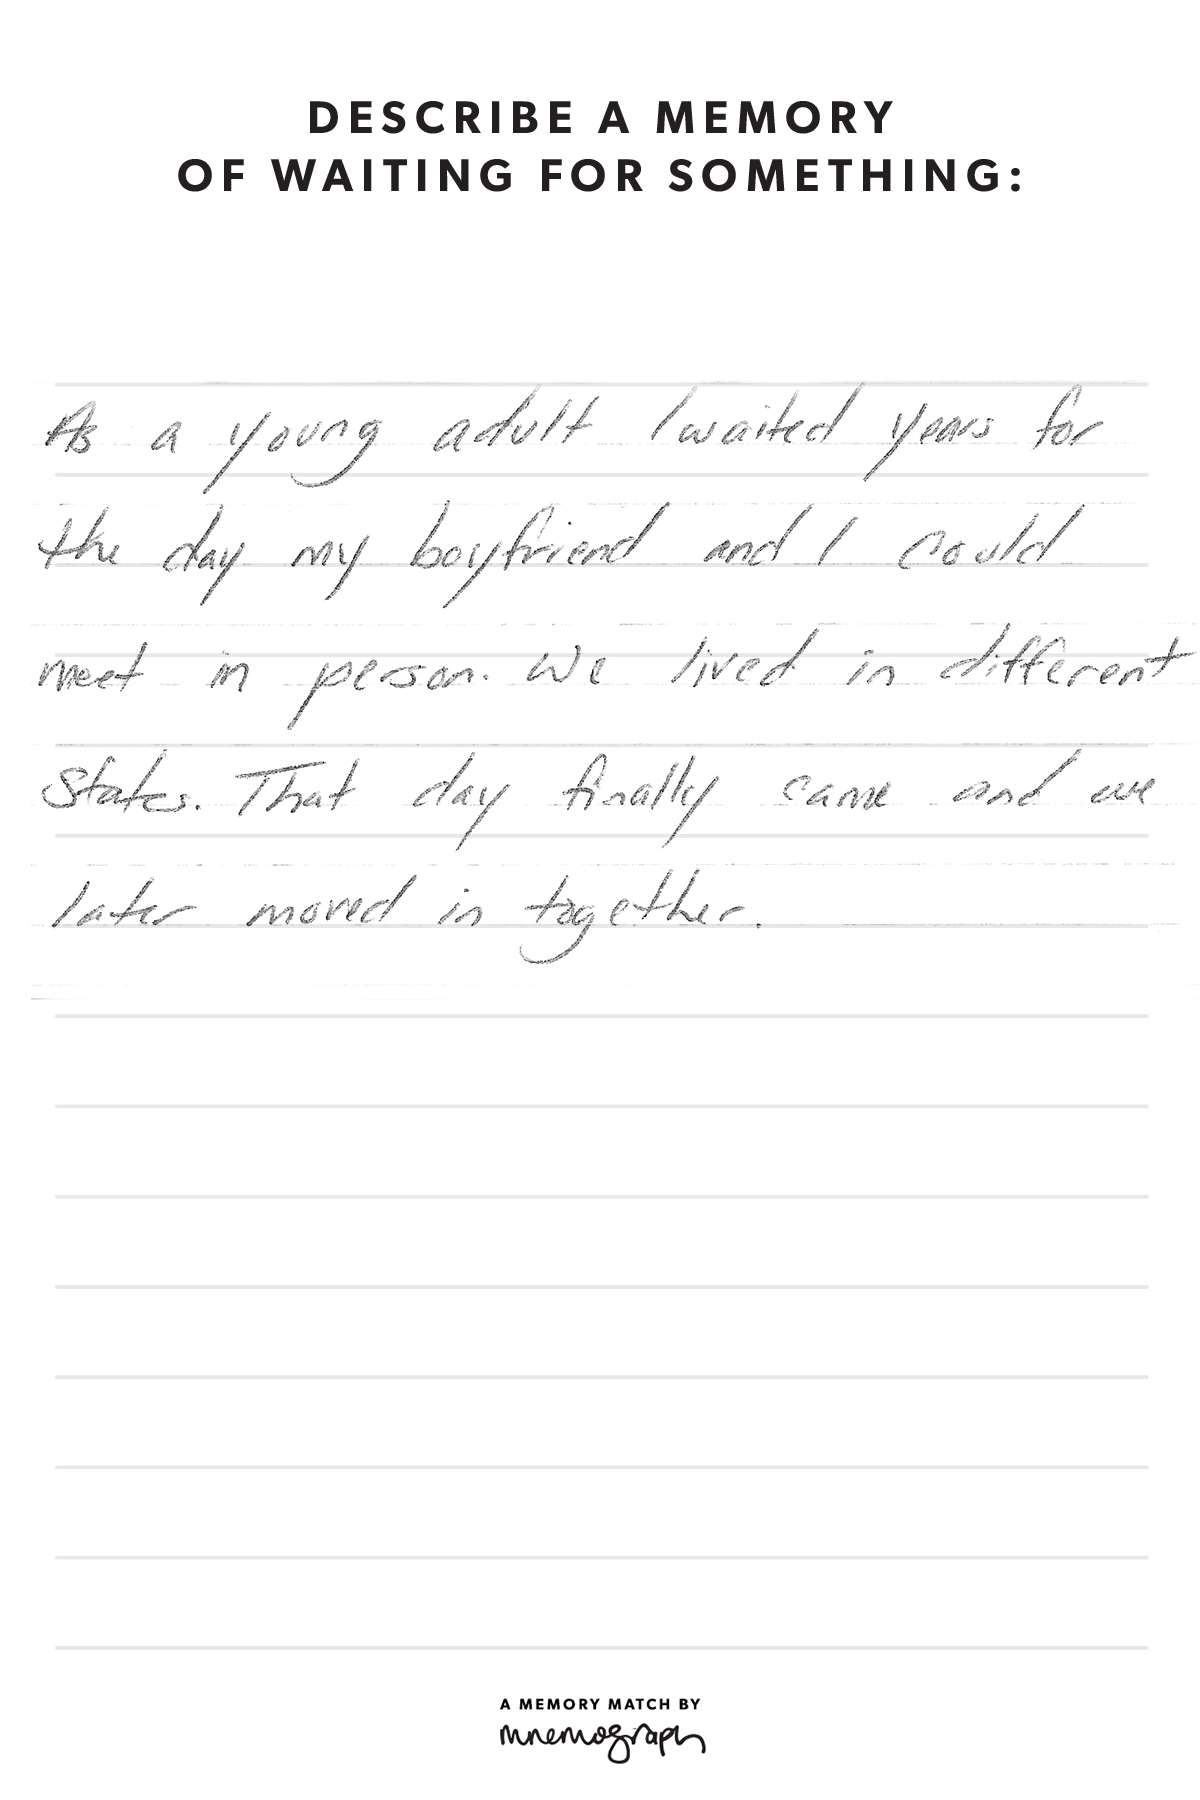 DESCRIBE A MEMORY
OF WAITING FOR SOMETHING:
As a young adult I waited years for
the day my boyfriend and I could
meet in person. We lived in different
states. That day finally came and we
later moved in together.
A MEMORY MATCH BY
mnemograph